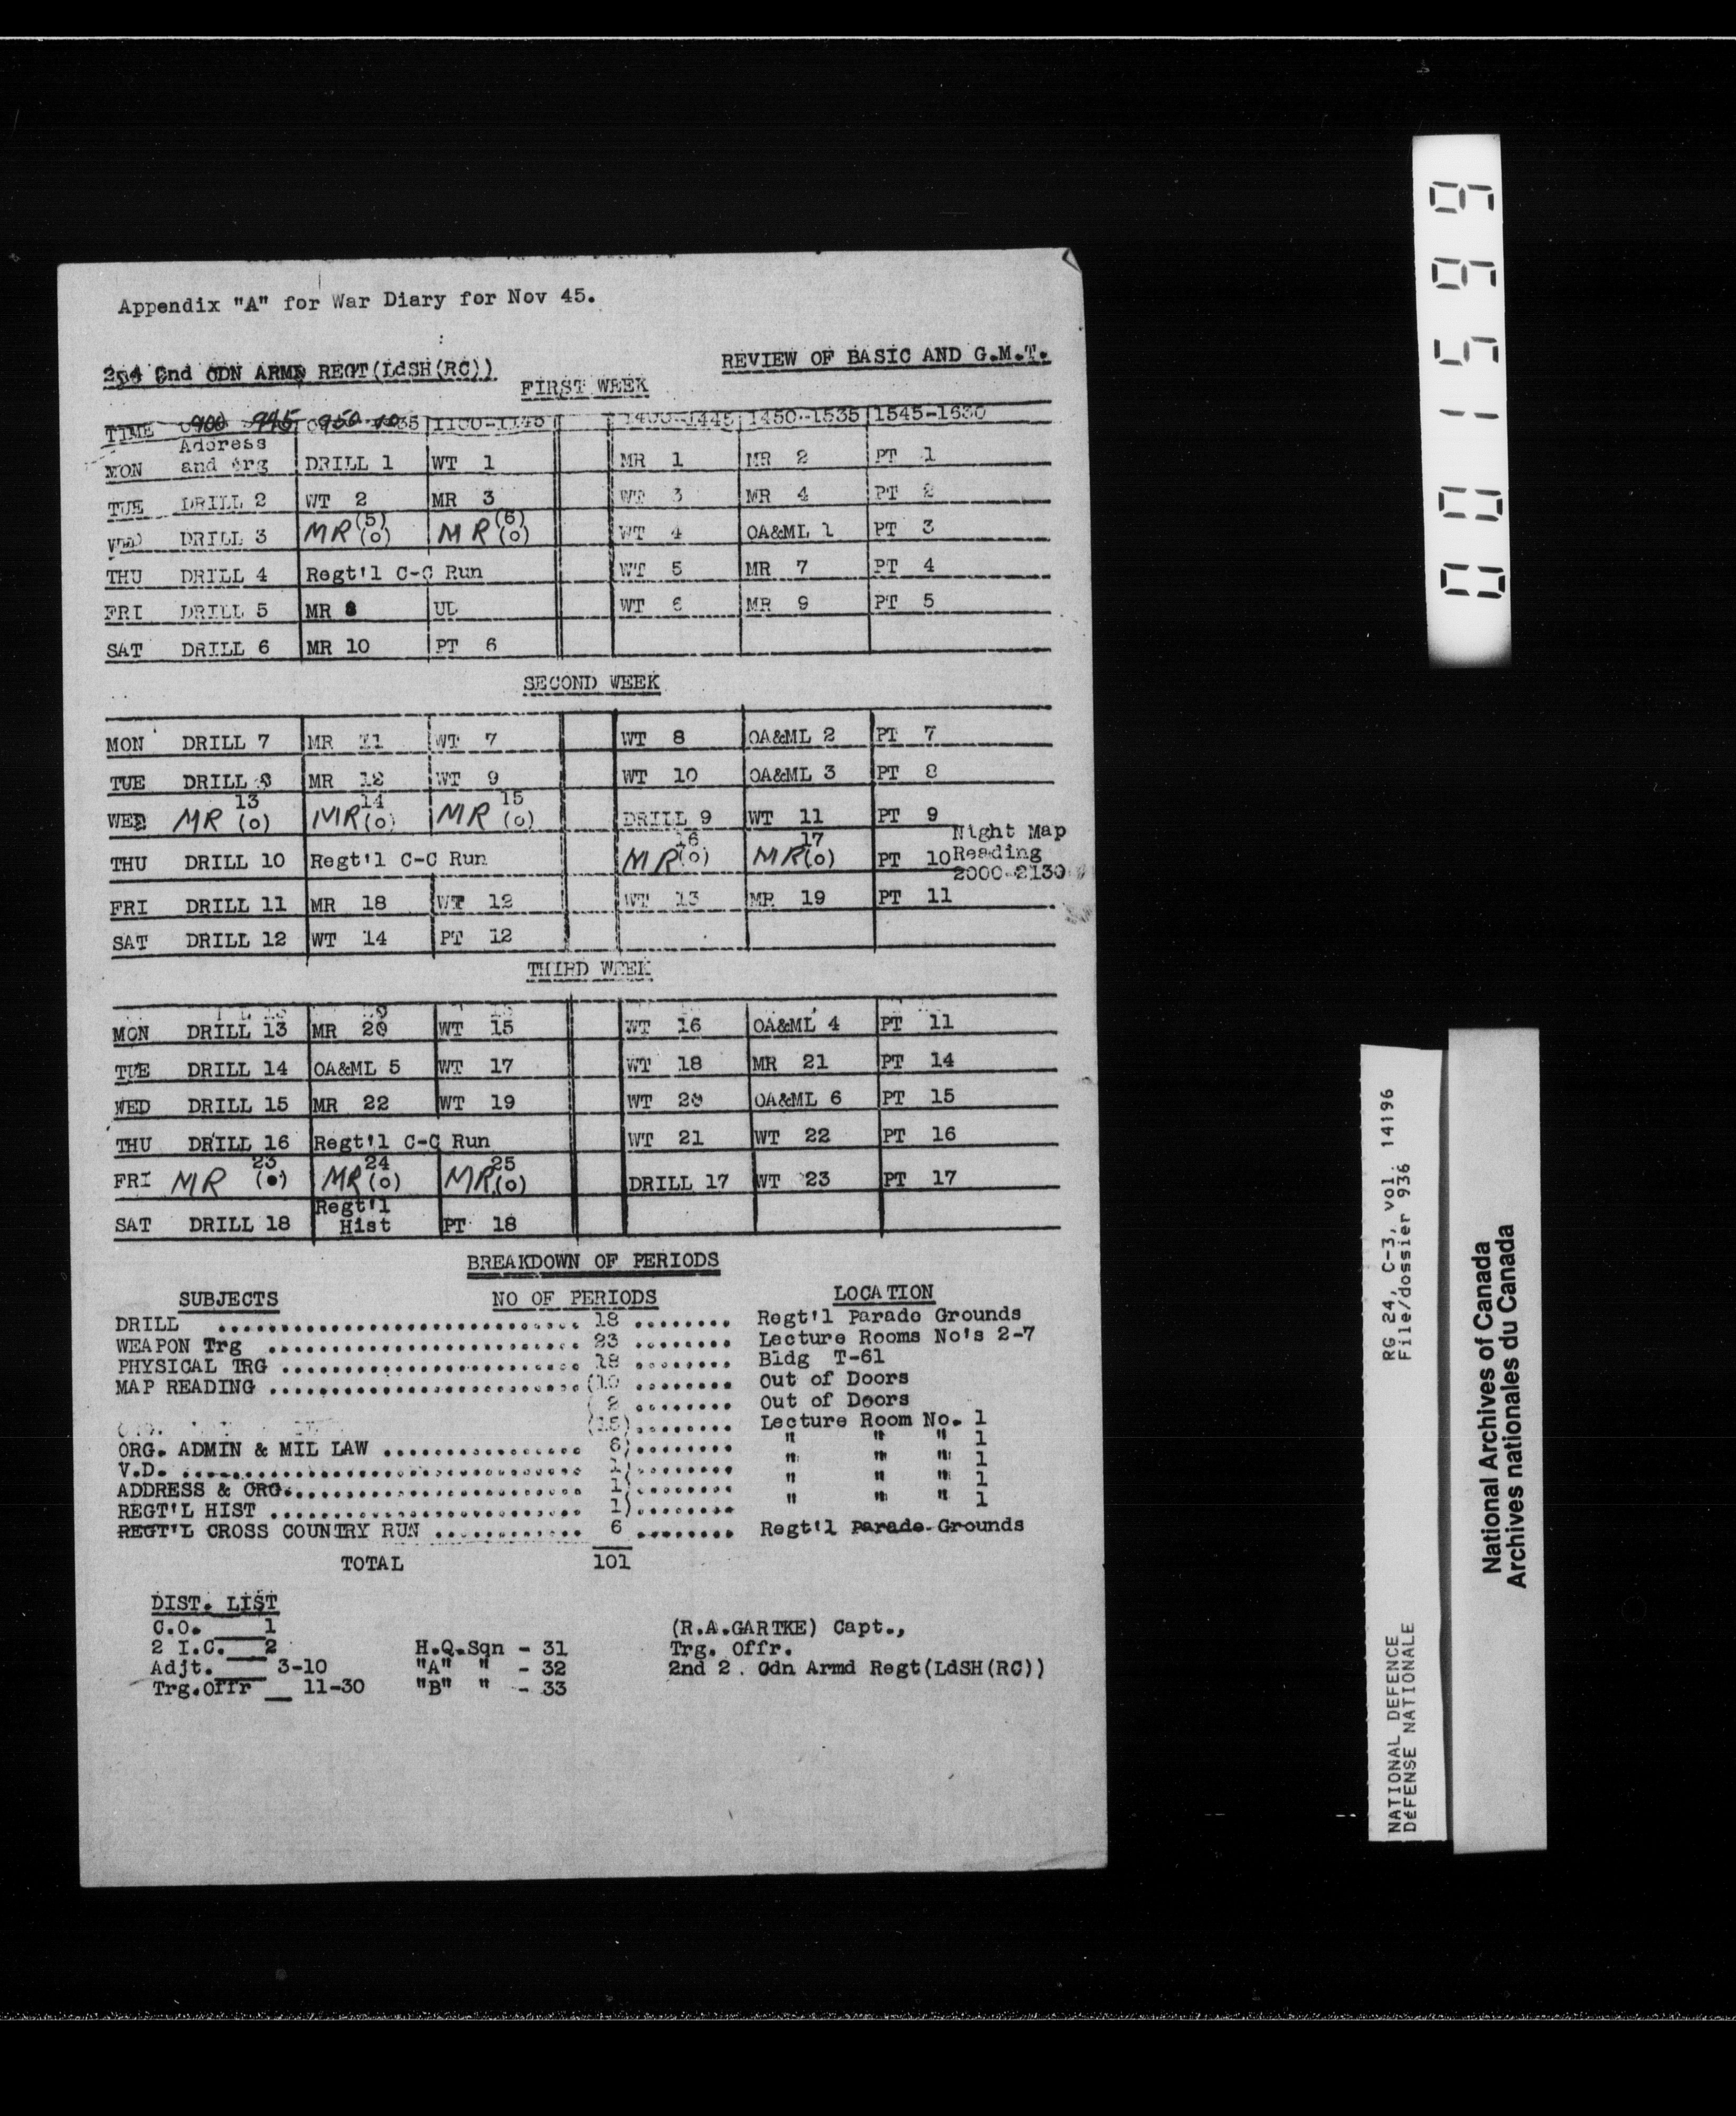 Appendix "A" for War Diary for Nov 45.
2nd CDN ARMD REGT(LdSH(RC)) REVIEW OF BASIC AND G.M.T.
FIRST WEEK
TIME 0900 945 0950 1035 1100-1145 1400-1445 1450-1535 1545-1630
MON Address and org DRILL 1 WT 1 MR 1 MR 2 PT 1
TUE DRILL 2 WT 2 MR 3 WT 3 MR 4 PT 2
WED DRILL 3 MR (5) (o) MR (6) (o) WT 4 OA&ML 1 PT 3
THU DRILL 4 Regt'l C-C Run WT 5 MR 7 PT 4
FRI DRILL 5 MR 8 WT 6 MR 9 PT 5
SAT DRILL 6 MR 10 PT 6
SECOND WEEK
MON DRILL 7 MR 11 WT 7 WT 8 OA&ML 2 PT 7
TUE DRILL 8 MR 12 WT 9 WT 10 OA&ML 3 PT 8
WED MR 13 (o) MR 14 (o) MR 15 (o) DRILL 9 WT 11 PT 9
THU DRILL 10 Regt'l C-C Run MR 16 (o) MR 17 (o) PT 10 Night Map Reading 2000-2130
FRI DRILL 11 MR 18 WT 12 WT 13 MR 19 PT 11
SAT DRILL 12 WT 14 PT 12
THIRD WEEK
MON DRILL 13 MR 20 WT 15 WT 16 OA&ML 4 PT 11
TUE DRILL 14 OA&ML 5 WT 17 WT 18 MR 21 PT 14
WED DRILL 15 MR 22 WT 19 WT 20 OA&ML 6 PT 15
THU DRILL 16 Regt'l C-C Run WT 21 WT 22 PT 16
FRI MR 23 (o) MR 24 (o) MR 25 (o) DRILL 17 WT 23 PT 17
SAT DRILL 18 Regt'l Hist PT 18
BREAKDOWN OF PERIODS
SUBJECTS NO OF PERIODS LOCATION
DRILL .............................. 18 ........ Regt'l Parade Grounds
WEAPON Trg ......................... 23 ........ Lecture Rooms No's 2-7
PHYSICAL TRG ........................ 18 ........ Bldg T-61
MAP READING .........................(10 ........ Out of Doors
( 2 ........ Out of Doors
(15)........ Lecture Room No. 1
ORG. ADMIN & MIL LAW ................ 6)........ " " " 1
V.D. ................................ 1)........ " " " 1
ADDRESS & ORG........................ 1)........ " " " 1
REGT'L HIST ......................... 1)........ " " " 1
REGT'L CROSS COUNTRY RUN ............ 6 ........ Regt'l Parade Grounds
TOTAL 101
DIST. LIST
C.O. ____1
2 I.C.___2 H.Q.Sqn - 31
Adjt.____ 3-10 "A" " - 32
Trg.Offr __ 11-30 "B" " - 33
(R.A.GARTKE) Capt.,
Trg. Offr.
2nd 2. Cdn Armd Regt(LdSH(RC))
001599
RG 24, C-3, vol. 14196
File/dossier 936
NATIONAL DEFENCE
DéFENSE NATIONALE
National Archives of Canada
Archives nationales du Canada